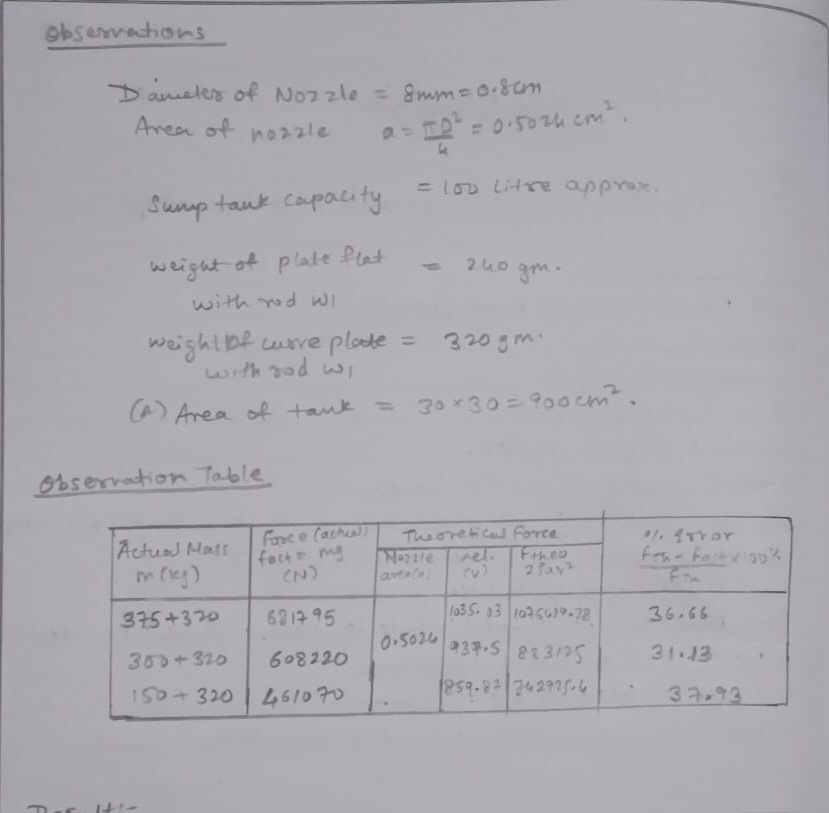 Observations
Diameter of Nozzle = 8mm = 0.8cm
Area of nozzle a = πD²/4 = 0.5024 cm².
Sump tank capacity = 100 Litre approx.
weight of plate flat = 240 gm.
with rod W1
weight of curve plate = 320 gm.
with rod W1
(A) Area of tank = 30×30 = 900cm².
Observation Table
Actual Mass m (kg) | Force (actual) fact = mg (N) | Theoretical Force | % Error
Nozzle area(a) | vel. (v) | Ftheo 2ρav² | Fth - fact/Fth × 100%
375+320 | 681795 | 1035.03 | 36.66
300+320 | 608220 | 0.5024 | 937.5 | 883125 | 31.13
150+320 | 461070 | 859.87 | 742925.4 | 37.93